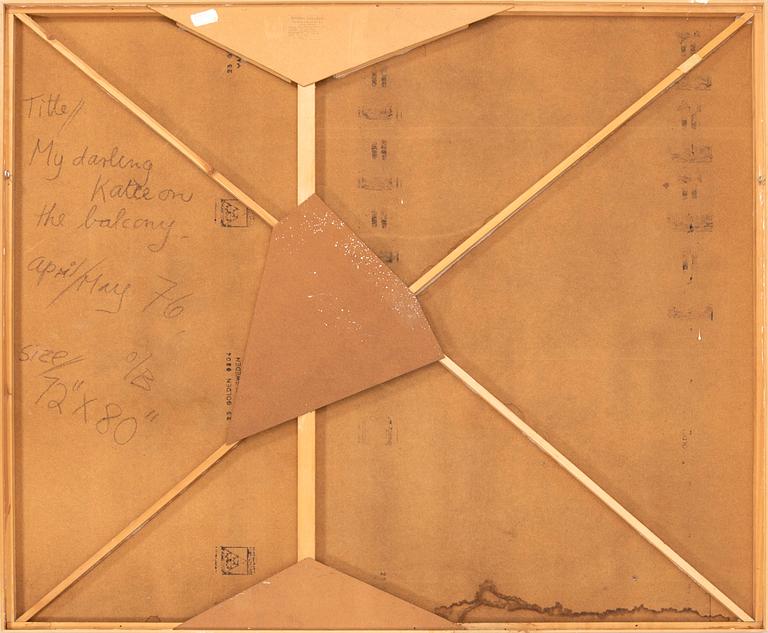 Title/
My darling
Katie on
the balcony_
April/May 76
Size/ o/B
72" X 80"
23 GOLDEN 0204
SWEDEN